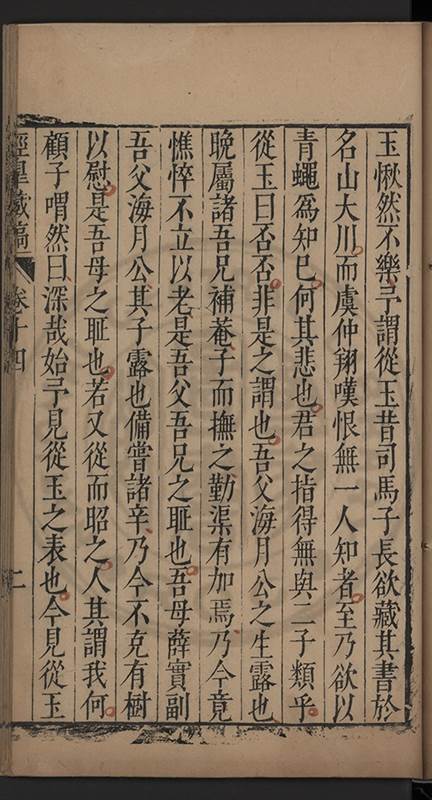 玉愀然不樂予謂從玉昔司馬子長欲藏其書於
名山大川而虞仲翔嘆恨無一人知者至乃欲以
青蠅為知已何其悲也君之指得無與二子類乎
從玉曰否否非是之謂也吾父海月公之生露也
晚屬諸吾兄補菴子而撫之勤渠有加焉乃今竟
憔悴不立以老是吾父吾兄之耻也吾母薛實副
吾父海月公其子露也備嘗諸辛乃今不克有樹
以慰是吾母之耻也若又從而昭之人其謂我何
顧子喟然曰深哉始予見從玉之表也今見從玉
涇臯藏稿 卷十四 二